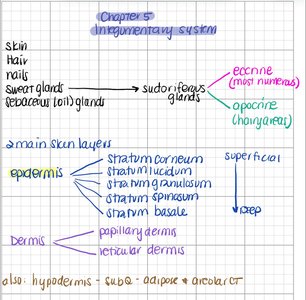 Chapter 5
Integumentary system
skin
Hair
nails
sweat glands → sudoriferous glands
sebaceous (oil) glands
eccrine
(most numerous)
apocrine
(hairy areas)
2 main skin layers
epidermis
stratum corneum
stratum lucidum
stratum granulosum
stratum spinosum
stratum basale
superficial
DEEP
Dermis
papillary dermis
reticular dermis
also: hypodermis - subQ - adipose & areolar CT